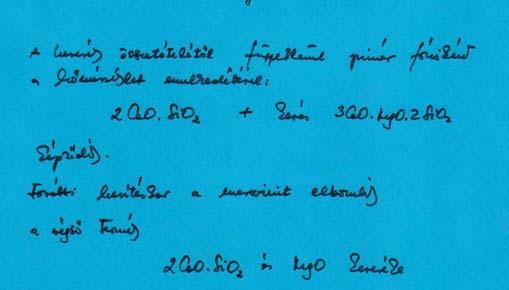 A keverés összetételétől függetlenül primér fázisként
a hőmérséklet emelkedésével:
2CaO.SiO₂ + kevés 3CaO.MgO.2SiO₂
képződés.
További hevítéskor a merwinit elbomlás
a végső termés
2CaO.SiO₂ és MgO keveréke